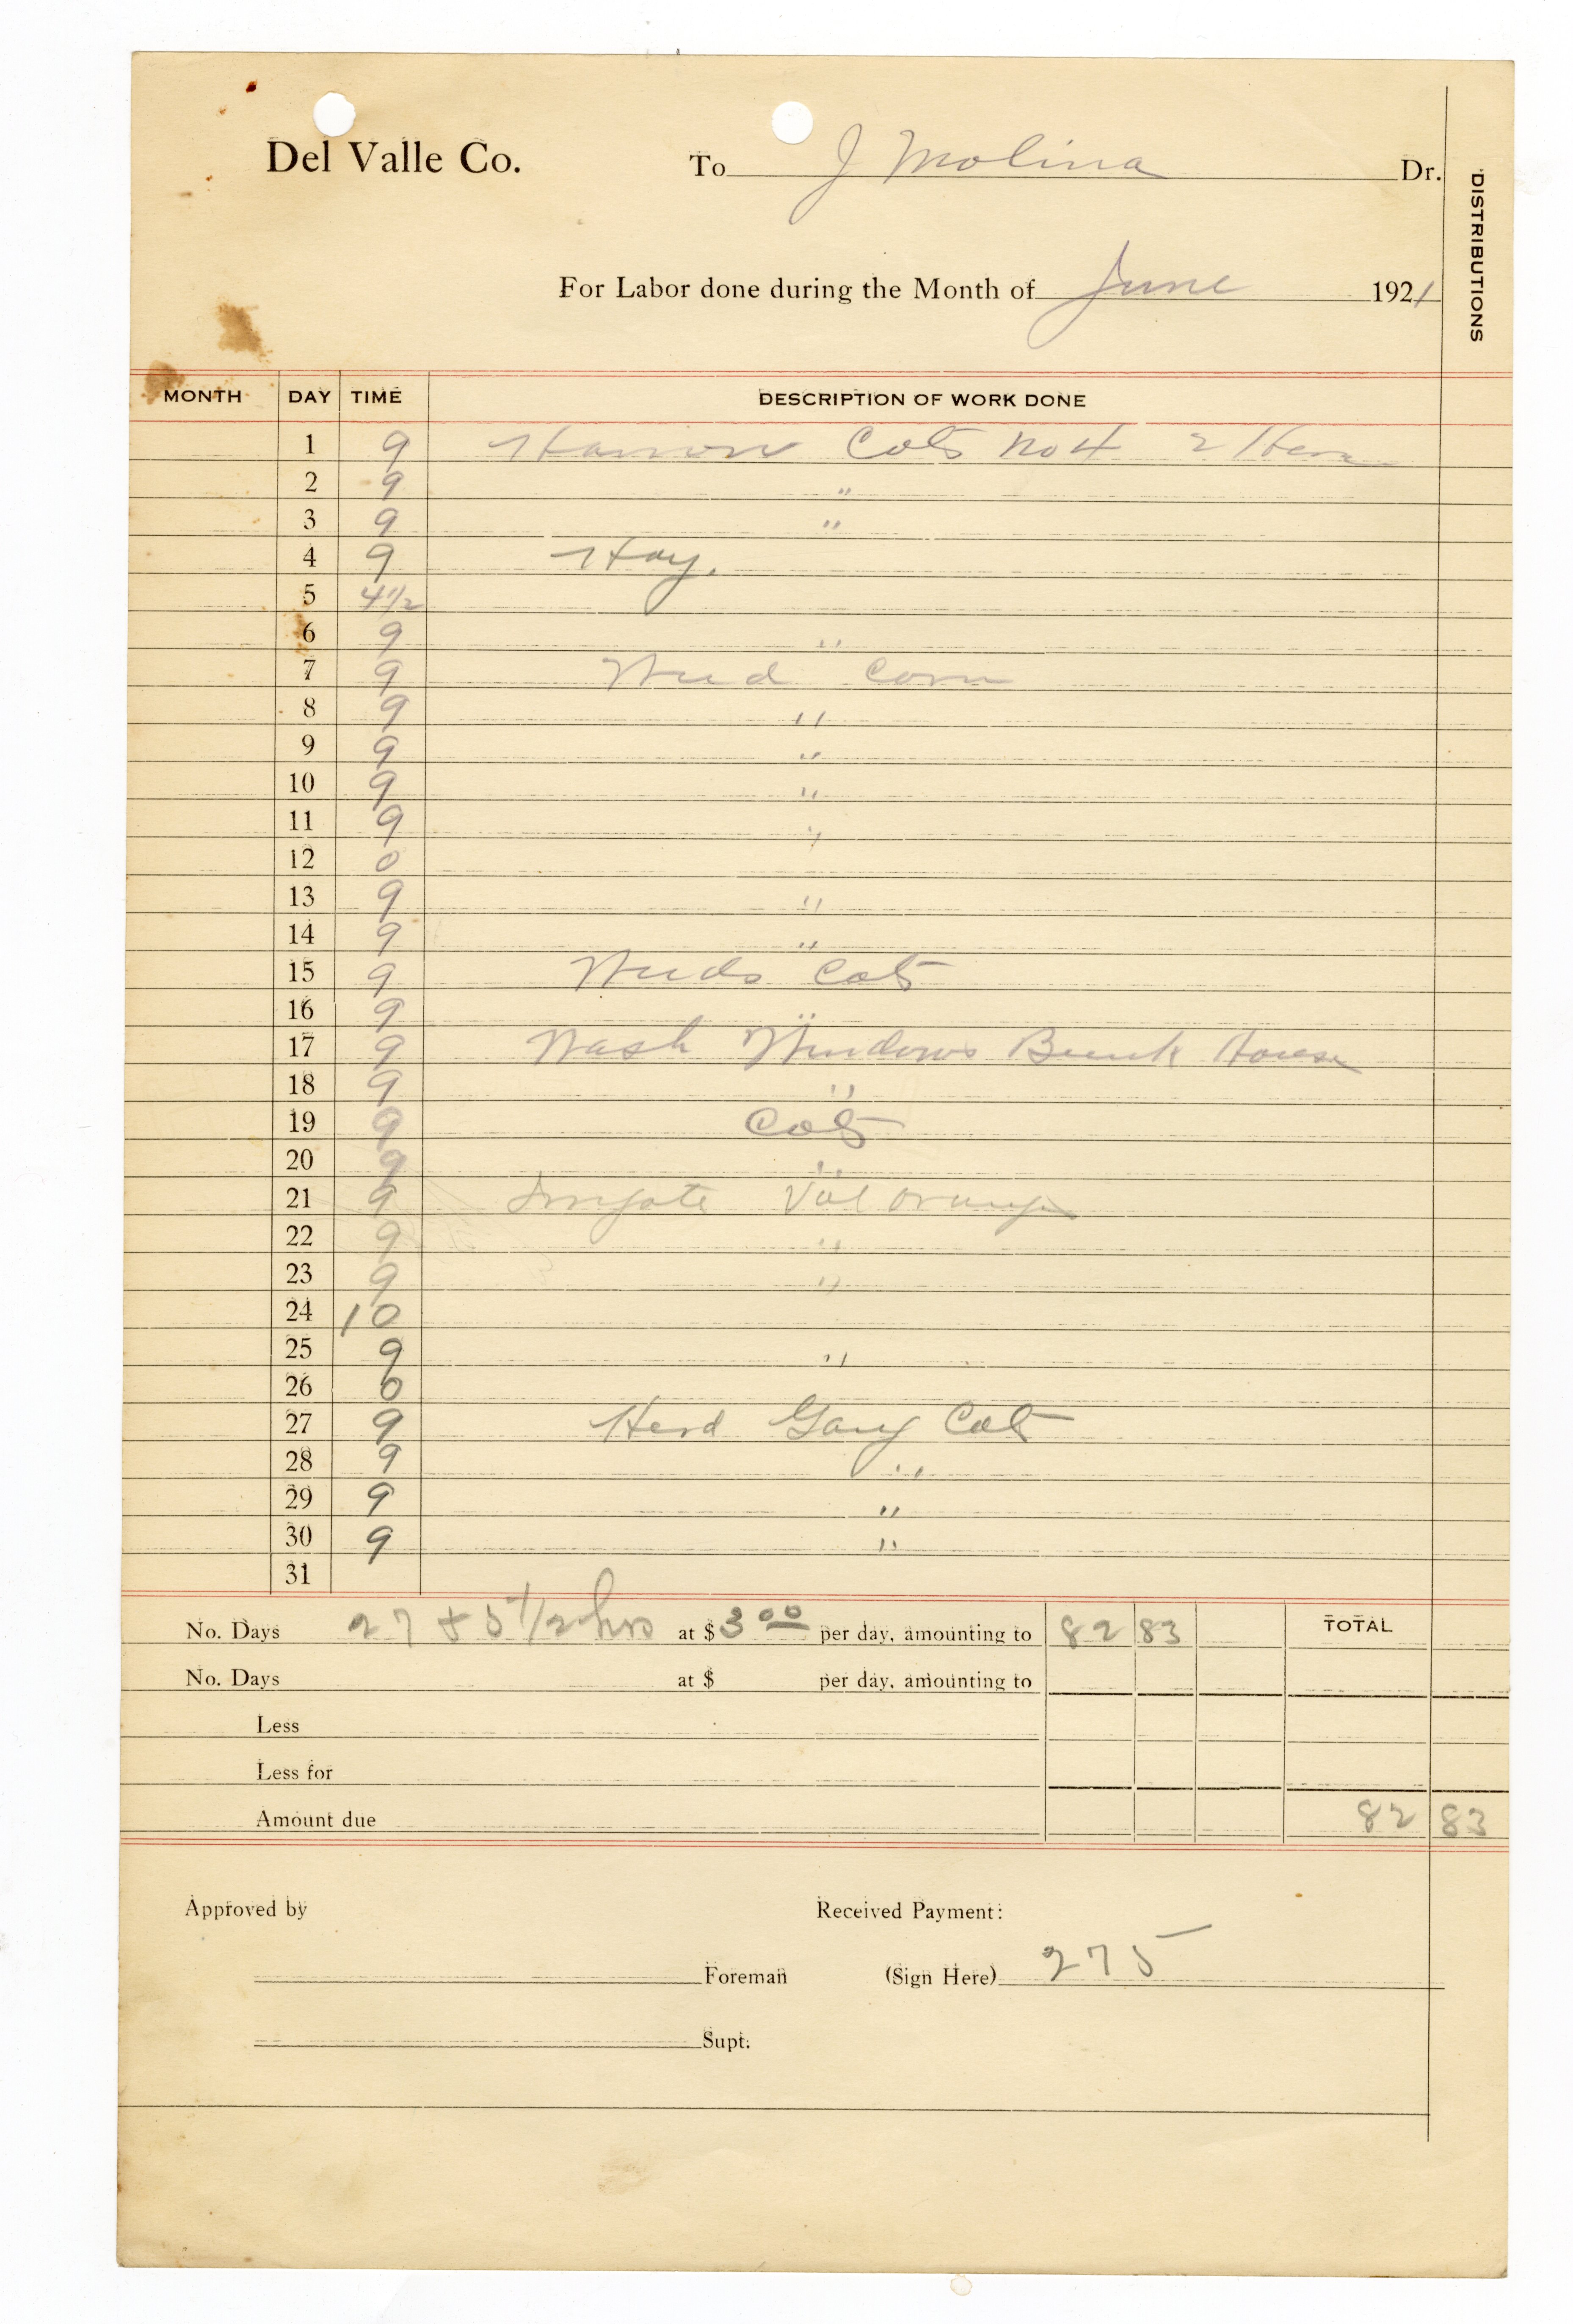 Del Valle Co. To J Molina Dr.
DISTRIBUTIONS
For Labor done during the Month of June 1921
MONTH DAY TIME DESCRIPTION OF WORK DONE
1 9 Harrow Cots No 4 2
2 9 "
3 9 "
4 9 Hay.
5 4 1/2
6 9 "
7 9 Weed Corn
8 9 "
9 9 "
10 9 "
11 9 "
12 0
13 9 "
14 9 "
15 9 Weeds Cots
16 9 "
17 9 Wash Windows Bunk House
18 9 "
19 9 Cots
20 9 "
21 9 Irrigate Val Oranges
22 9 "
23 9 "
24 10
25 9 "
26 0
27 9 Herd Gang Cots
28 9 "
29 9 "
30 9 "
31
No. Days 27 + 5 1/2 hrs at $ 3 00 per day, amounting to 82 83 TOTAL
No. Days at $ per day, amounting to
Less
Less for
Amount due 82 83
Approved by Received Payment:
Foreman (Sign Here) 275
Supt.